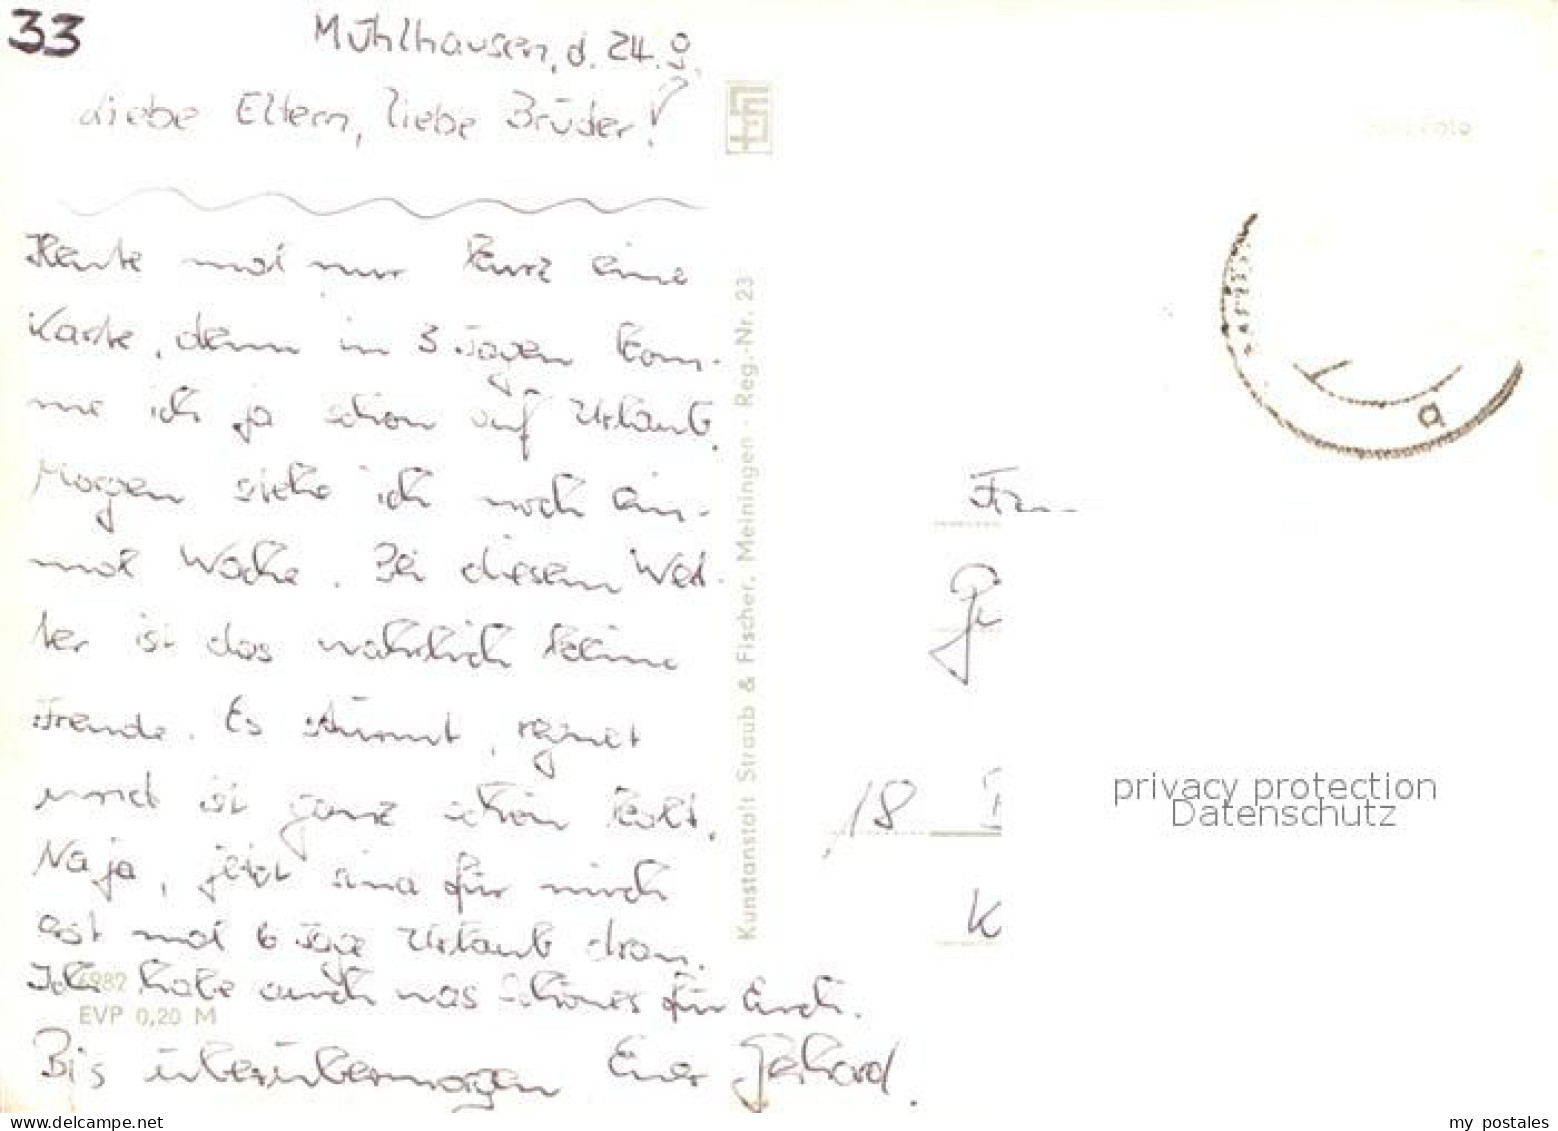 33
Mühlhausen, d. 24.9.
Liebe Eltern, liebe Brüder!
Heute mal nur kurz eine
Karte, denn in 3 Tagen kom-
me ich ja schon auf Urlaub.
Morgen stehe ich noch ein-
mal Wache. Bei diesem Wet-
ter ist das wahrlich keine
Freude. Es stürmt, regnet
und ist ganz schön kalt.
Na ja, jetzt sind für mich
erst mal 6 Tage Urlaub dran.
Ich habe auch was Schönes für Euch.
Bis überübermorgen Euer Gerhard.
4982
EVP 0,20 M
Kunstanstalt Straub & Fischer, Meiningen · Reg.-Nr. 23
Foto
a
18
K
privacy protection
Datenschutz
www.delcampe.net
my_postales